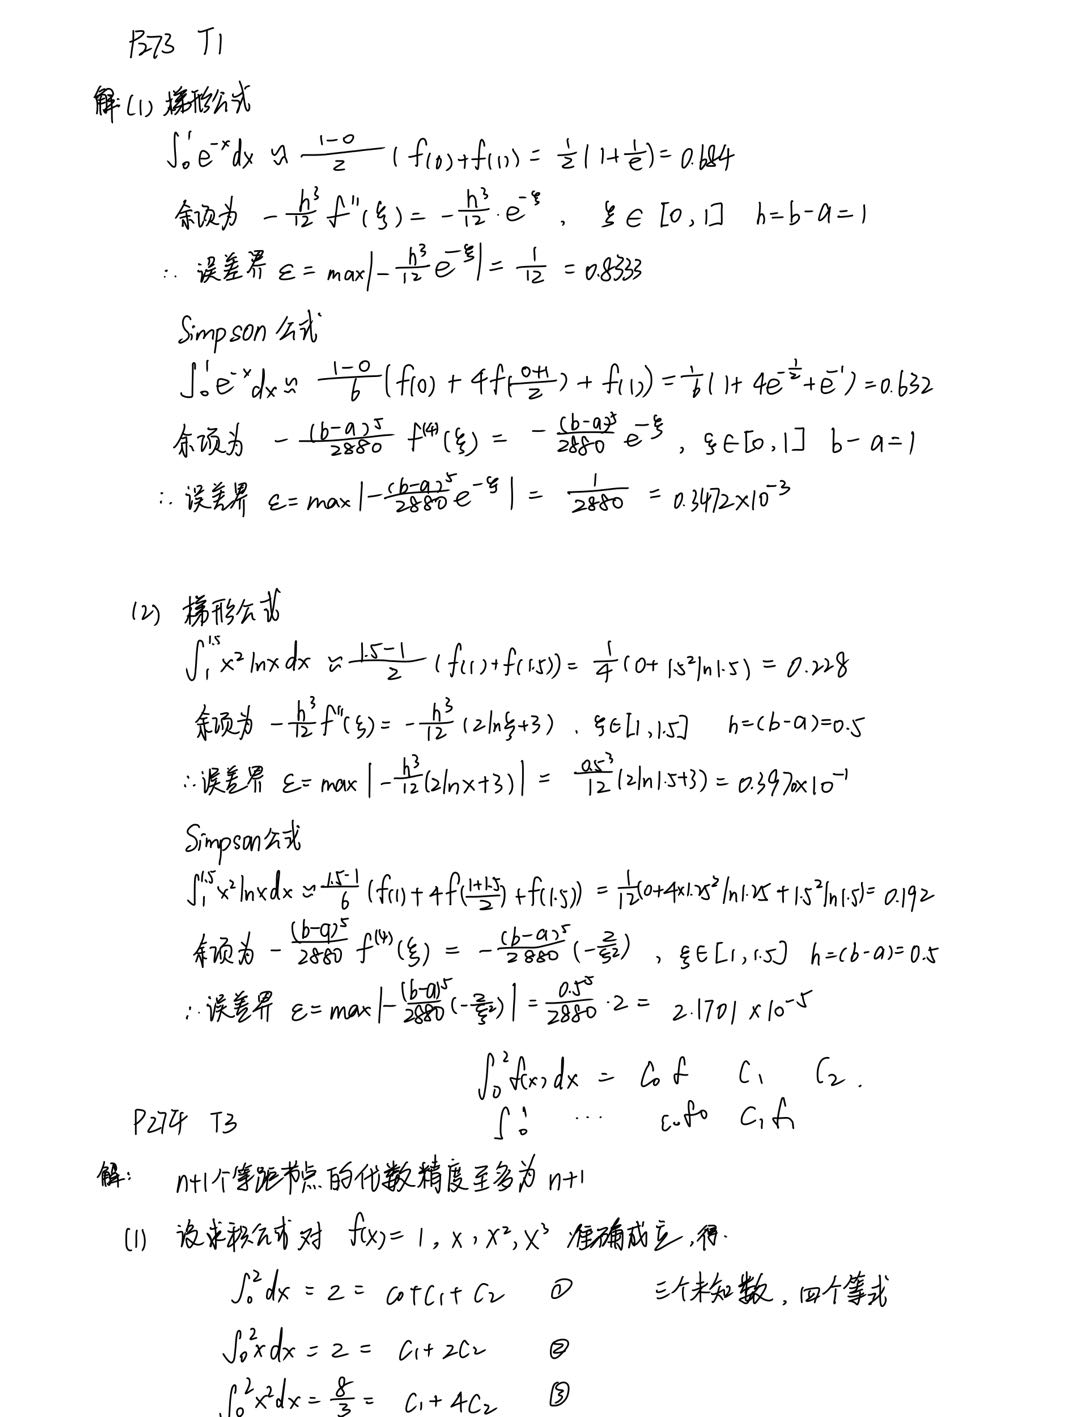 P273 T1
解:(1) 梯形公式
∫₀¹e⁻ˣdx ≈ (1-0)/2 (f(0)+f(1)) = 1/2(1+1/e) = 0.684
余项为 -h³/12 f''(ξ) = -h³/12·e^(-ξ), ξ∈[0,1] h=b-a=1
∴ 误差界 ε = max|-h³/12 e^(-ξ)| = 1/12 = 0.8333
Simpson 公式
∫₀¹e⁻ˣdx ≈ (1-0)/6 (f(0) + 4f((0+1)/2) + f(1)) = 1/6(1+4e^(-1/2)+e⁻¹) = 0.632
余项为 -(b-a)⁵/2880 f⁽⁴⁾(ξ) = -(b-a)⁵/2880 e^(-ξ), ξ∈[0,1] b-a=1
∴ 误差界 ε = max|-(b-a)⁵/2880 e^(-ξ)| = 1/2880 = 0.3472×10⁻³
(2) 梯形公式
∫₁^1.5 x²lnxdx ≈ (1.5-1)/2 (f(1)+f(1.5)) = 1/4(0+1.5²ln1.5) = 0.228
余项为 -h³/12 f''(ξ) = -h³/12 (2lnξ+3), ξ∈[1,1.5] h=(b-a)=0.5
∴误差界 ε = max|-h³/12(2lnx+3)| = 0.5³/12(2ln1.5+3) = 0.3970×10⁻¹
Simpson公式
∫₁^1.5 x²lnxdx ≈ (1.5-1)/6 (f(1)+4f((1+1.5)/2)+f(1.5)) = 1/12(0+4×1.25²ln1.25+1.5²ln1.5) = 0.192
余项为 -(b-a)⁵/2880 f⁽⁴⁾(ξ) = -(b-a)⁵/2880 (-2/ξ²), ξ∈[1,1.5] h=(b-a)=0.5
∴误差界 ε = max|-(b-a)⁵/2880 (-2/ξ²)| = 0.5⁵/2880·2 = 2.1701×10⁻⁵
∫₀²f(x)dx = C₀f C₁ C₂.
P274 T3 ∫₀¹ ⋯ c₀f₀ C₁f₁
解: n+1个等距节点的代数精度至多为n+1
(1) 设求积公式对 f(x)=1, x, x², x³ 准确成立,得.
∫₀²dx = 2 = C₀+C₁+C₂ ① 三个未知数,四个等式
∫₀²xdx = 2 = C₁+2C₂ ②
∫₀²x²dx = 8/3 = C₁+4C₂ ③